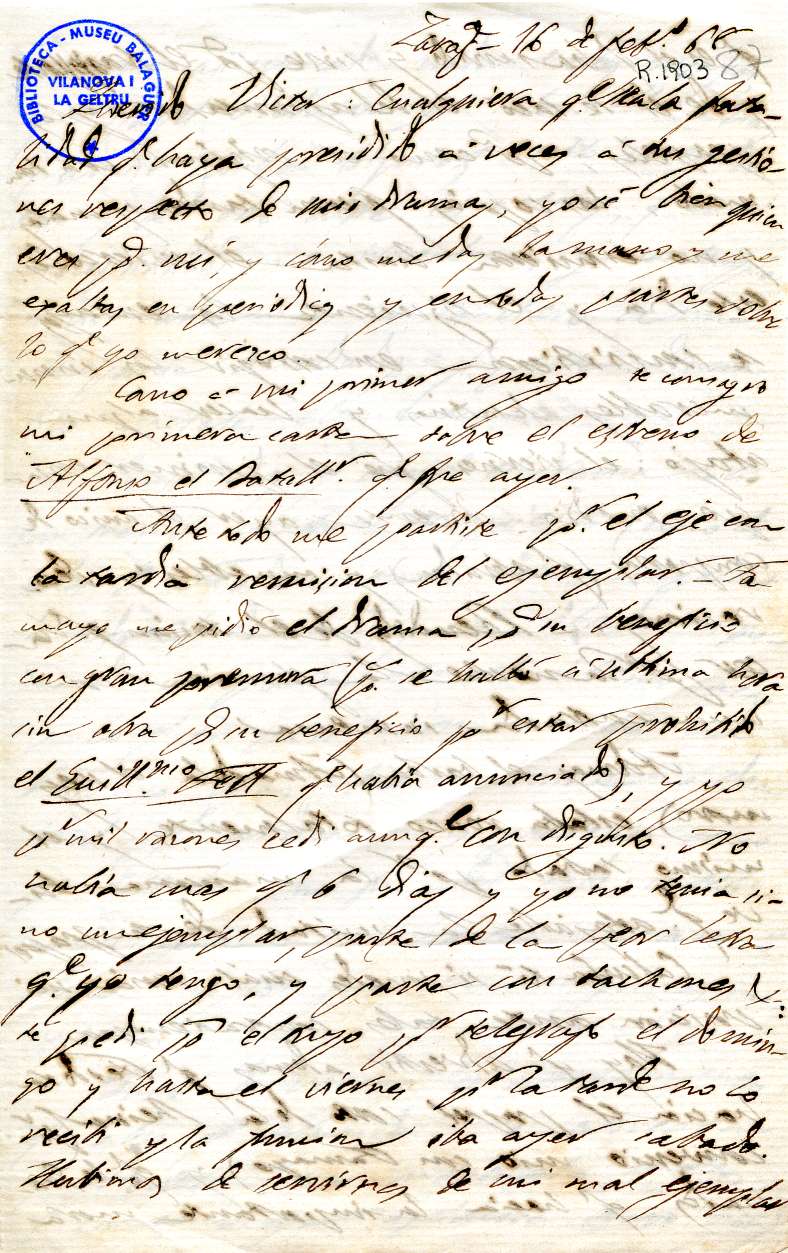 Zarag.ª 16 de feb.º 68
R.1903 87
BIBLIOTECA - MUSEU BALAGUER
VILANOVA I
LA GELTRÚ
Querido Victor: Cualquiera q.e sea la fata-
lidad q.e haya presidido á veces á tus gestio-
nes respecto de mis dramas, yo sé bien quien
eres p.ª mi, y cómo me das la mano y me
exaltas en periodicos y en todas partes sobre
lo q.e yo merezco.
Como á mi primer amigo te consagro
mi primera carta sobre el estreno de
"Alfonso el Batall.r q.e fue ayer.
Ante todo me partiste p.r el eje con
la tardia remision del ejemplar. - Ta
mayo me pidió el drama p.ª su beneficio
con gran premura (p.q. se halló á ultima hora
sin obra p.ª su beneficio p.r estar prohibido
el Guill.mo Tell q.e habia anunciado), y yo
p.r mil razones cedi aunq.e con disgusto. No
habia mas q.e 6 dias y yo no tenia si-
no un ejemplar, parte de la peor letra
q.e yo tengo, y parte con tachones &.
te pedi p.ª el tuyo p.r telegrafo el domin-
go y hasta el viernes p.r la tarde no lo
recibi y la funcion iba ayer sabado.
Hubimos de servirnos de mi mal ejemplar